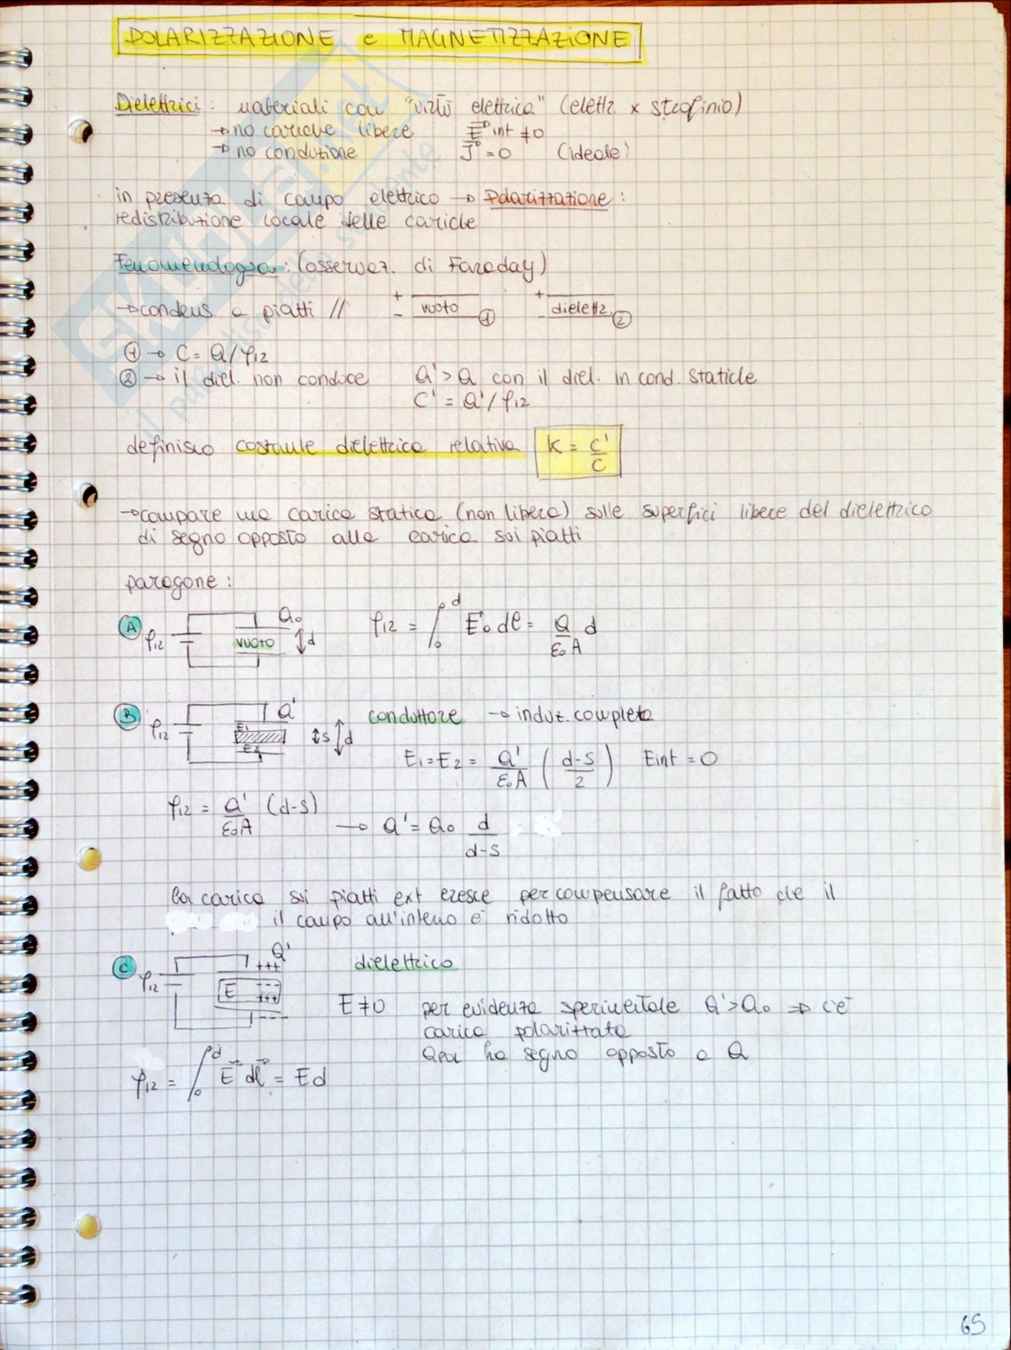 POLARIZZAZIONE e MAGNETIZZAZIONE
Dielettrici: materiali con "virtù elettrica" (elettr x strofinio)
→ no cariche libere E int ≠0
→ no conduzione J=0 (ideale)
in presenza di campo elettrico → Polarizzazione:
redistribuzione locale delle cariche
Fenomenologia: (osservaz. di Faraday)
→ condens a piatti // + - vuoto 1 + - dielettr. 2
1 → C = Q/φ12
2 → il diel. non conduce Q'>Q con il diel. in cond. statiche
C' = Q'/φ12
definisco costante dielettrica relativa K = C'/C
→ compare una carica statica (non libera) sulle superfici libere del dielettrico
di segno opposto alla carica sui piatti
paragone:
A φ12 Q0 vuoto d φ12 = ∫0^d E0 dl = Q/ε0A d
B φ12 Q' E1 E2 s d conduttore → induz. completa
E1=E2= Q'/ε0A (d-s/2) Eint = 0
φ12 = Q'/ε0A (d-s) → Q' = Q0 d/d-s
la carica sui piatti ext cresce per compensare il fatto che il
il campo all'interno è ridotto
C φ12 Q' +++ E --- +++ --- dielettrico
E≠0 per evidenza sperimentale Q'>Q0 ⇒ c'è
carica polarizzata
Qpol ha segno opposto a Q
φ12 = ∫0^d E dl = Ed
65